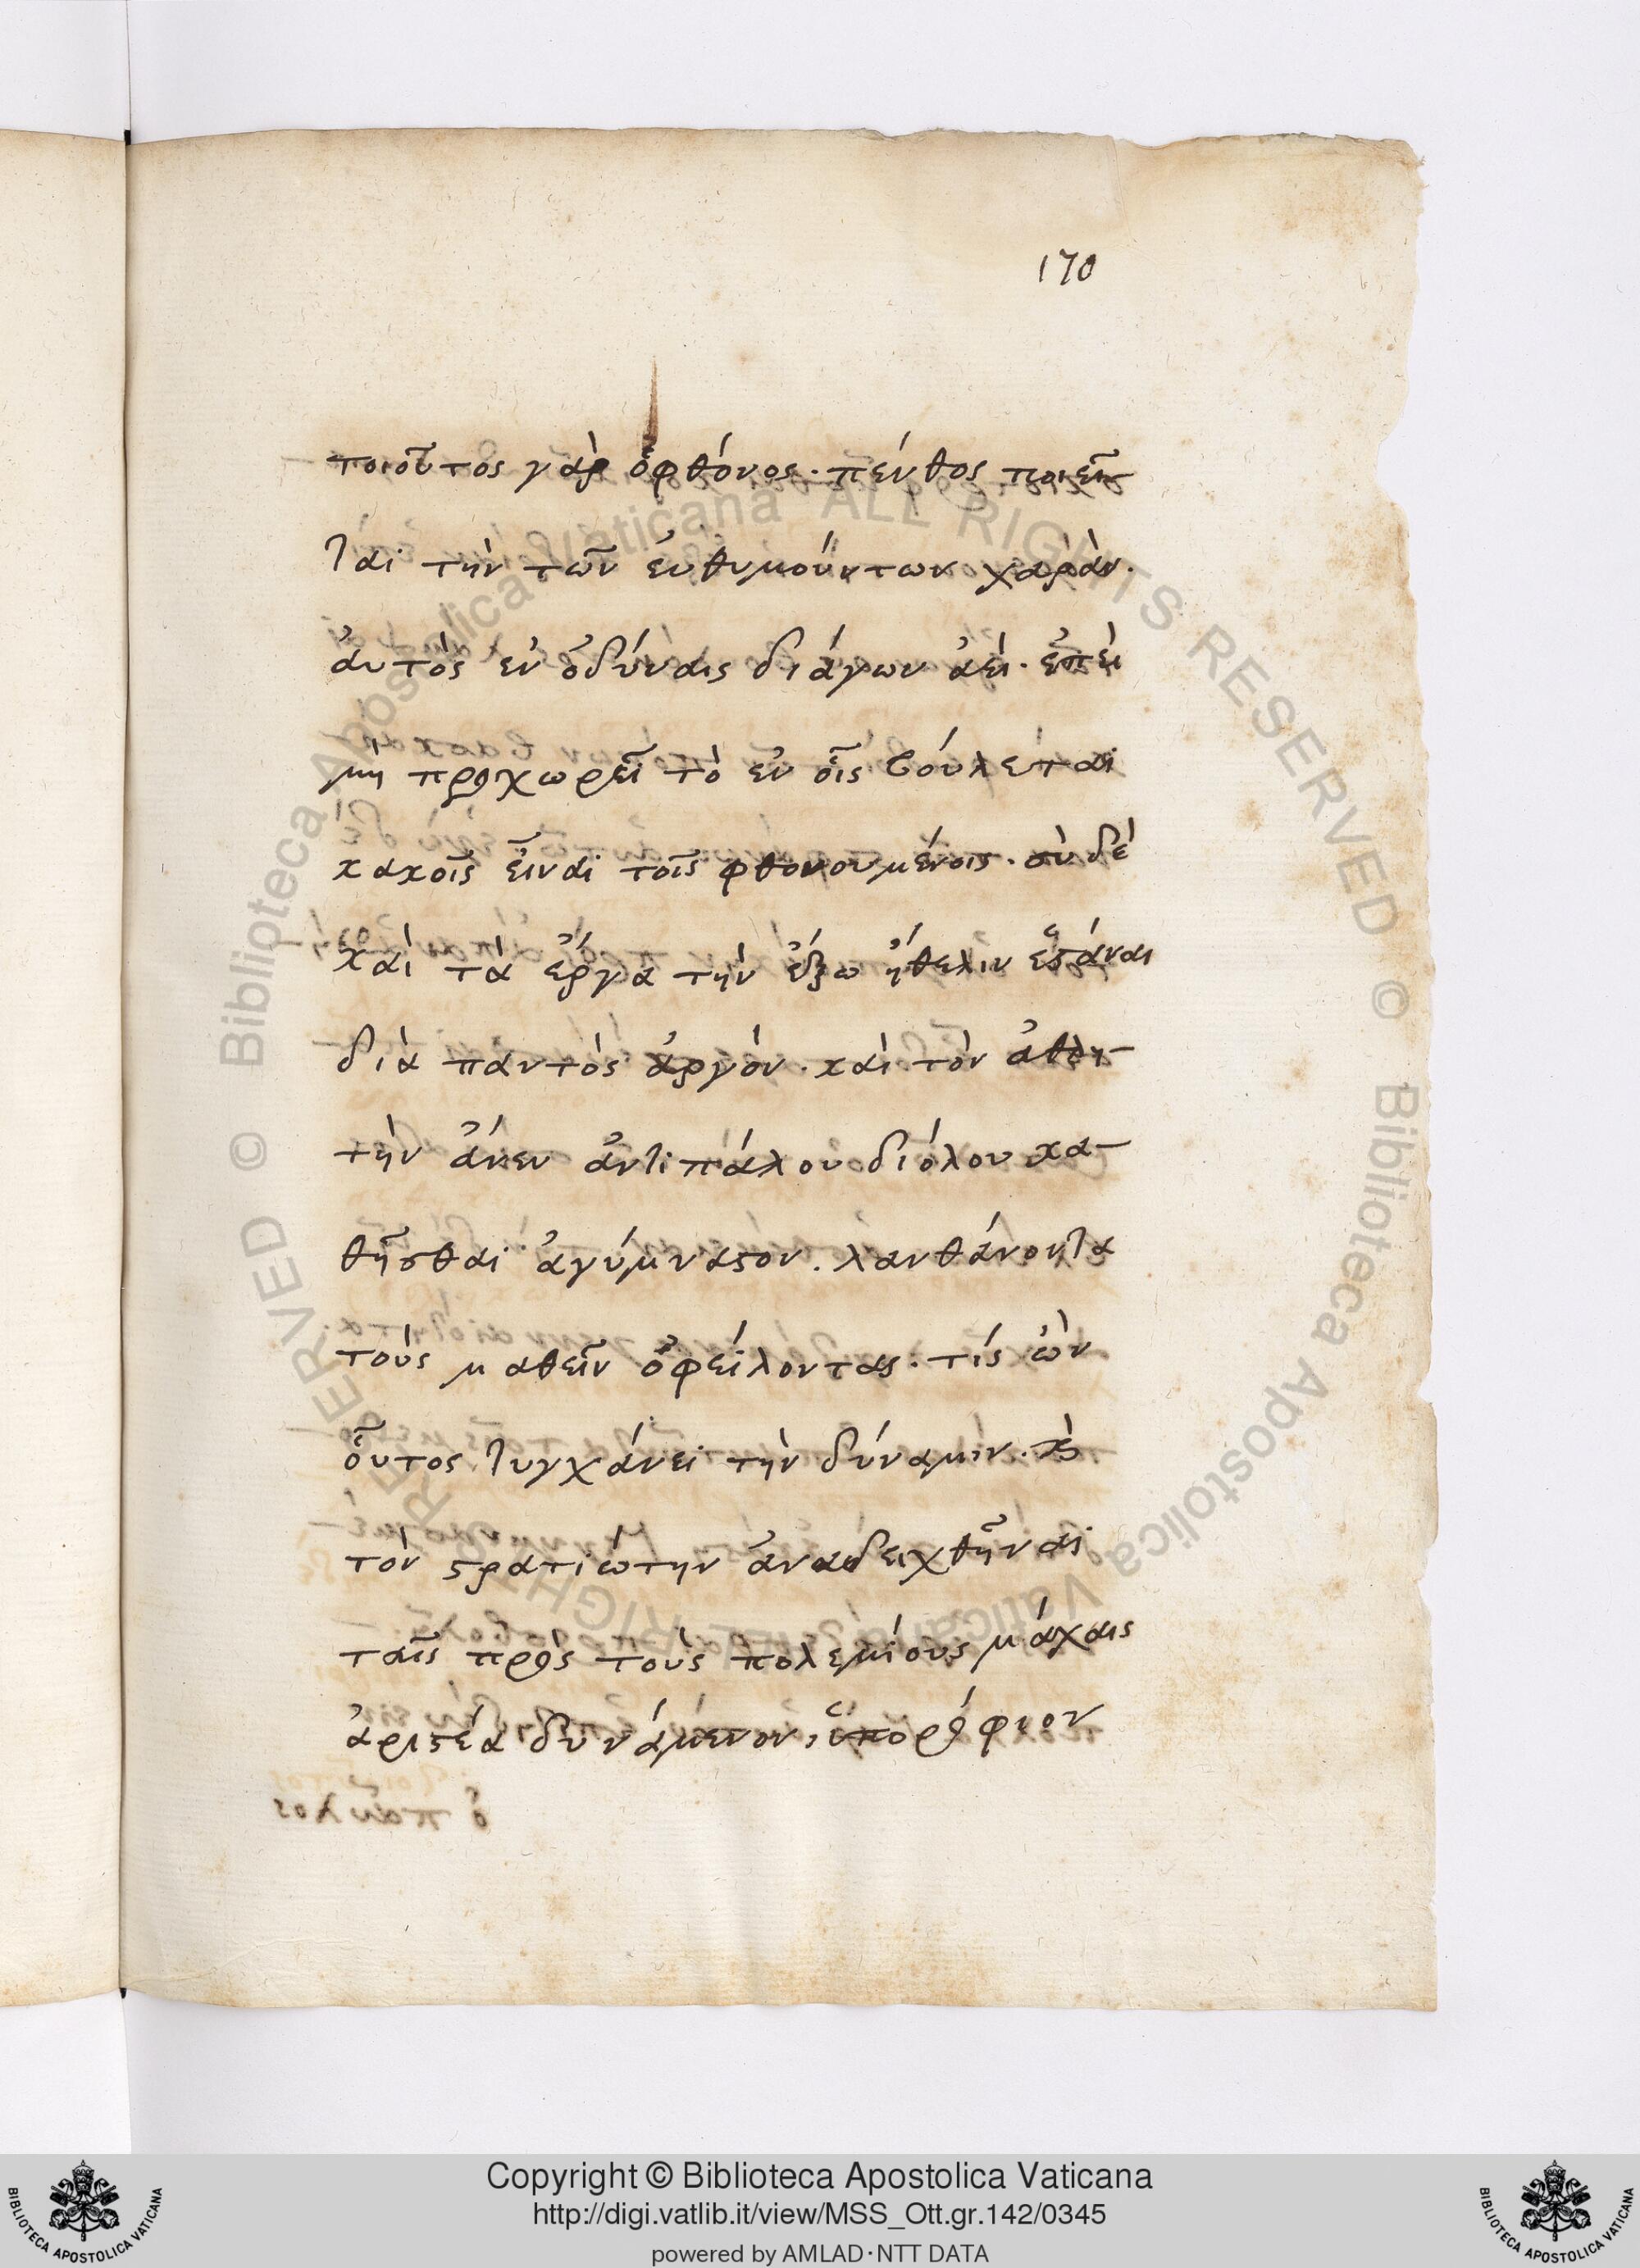 170
τοιοῦτος γὰρ ὁφθόνος· πένθος ποιεῖ
ται τὴν τῶν ἐυθυμούντων χαράν.
ἀυτὸς ἐν ὀδύναις διάγων ἀεὶ· ἐπεὶ
μὴ προχωρεῖ τὸ ἐν οἷς βούλεται
κακοῖς εἶναι τοῖς φθονουμένοις· σὺ δὲ
καὶ τὰ ἔργα τὴν ἔξω ἤθελεν ἑϛάναι
διὰ παντὸς ἀργόν· καὶ τὸν ἀθλη
τὴν ἄνευ ἀντιπάλου διόλου κα
θῆσθαι ἀγύμναϛον. λανθάνοντα
τοὺς μαθεῖν ὀφείλοντας· τίς ὢν
οὗτος τυγχάνει τὴν δύναμιν. κὶ
τὸν ϛρατιώτην ἀναδειχθῆναι
ταῖς πρὸς τοὺς πολεμίους μάχαις
ἀριϛέα δυνάμενον, ὑπορόφιον
Copyright © Biblioteca Apostolica Vaticana
http://digi.vatlib.it/view/MSS_Ott.gr.142/0345
powered by AMLAD·NTT DATA
BIBLIOTECA APOSTOLICA VATICANA
BIBLIOTECA APOSTOLICA VATICANA